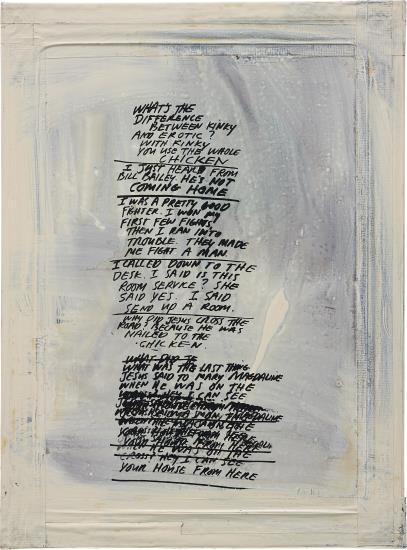 WHAT'S THE
DIFFERENCE
BETWEEN KINKY
AND EROTIC?
WITH KINKY
YOU USE THE WHOLE
CHICKEN
I JUST HEARD FROM
BILL BAILEY HE'S NOT
COMING HOME
I WAS A PRETTY GOOD
FIGHTER. I WON MY
FIRST FEW FIGHTS,
THEN I RAN INTO
TROUBLE. THEY MADE
ME FIGHT A MAN.
I CALLED DOWN TO THE
DESK. I SAID IS THIS
ROOM SERVICE? SHE
SAID YES. I SAID
SEND UP A ROOM.
WHY DID JESUS CROSS THE
ROAD? BECAUSE HE WAS
NAILED TO THE
CHICKEN.
WHAT DID JE
WHAT WAS THE LAST THING
JESUS SAID TO MARY MAGDALINE
WHEN HE WAS ON THE
I CAN SEE
FROM HERE
HE WAS ON THE
CROSS? HEY I CAN SEE
YOUR HOUSE FROM HERE